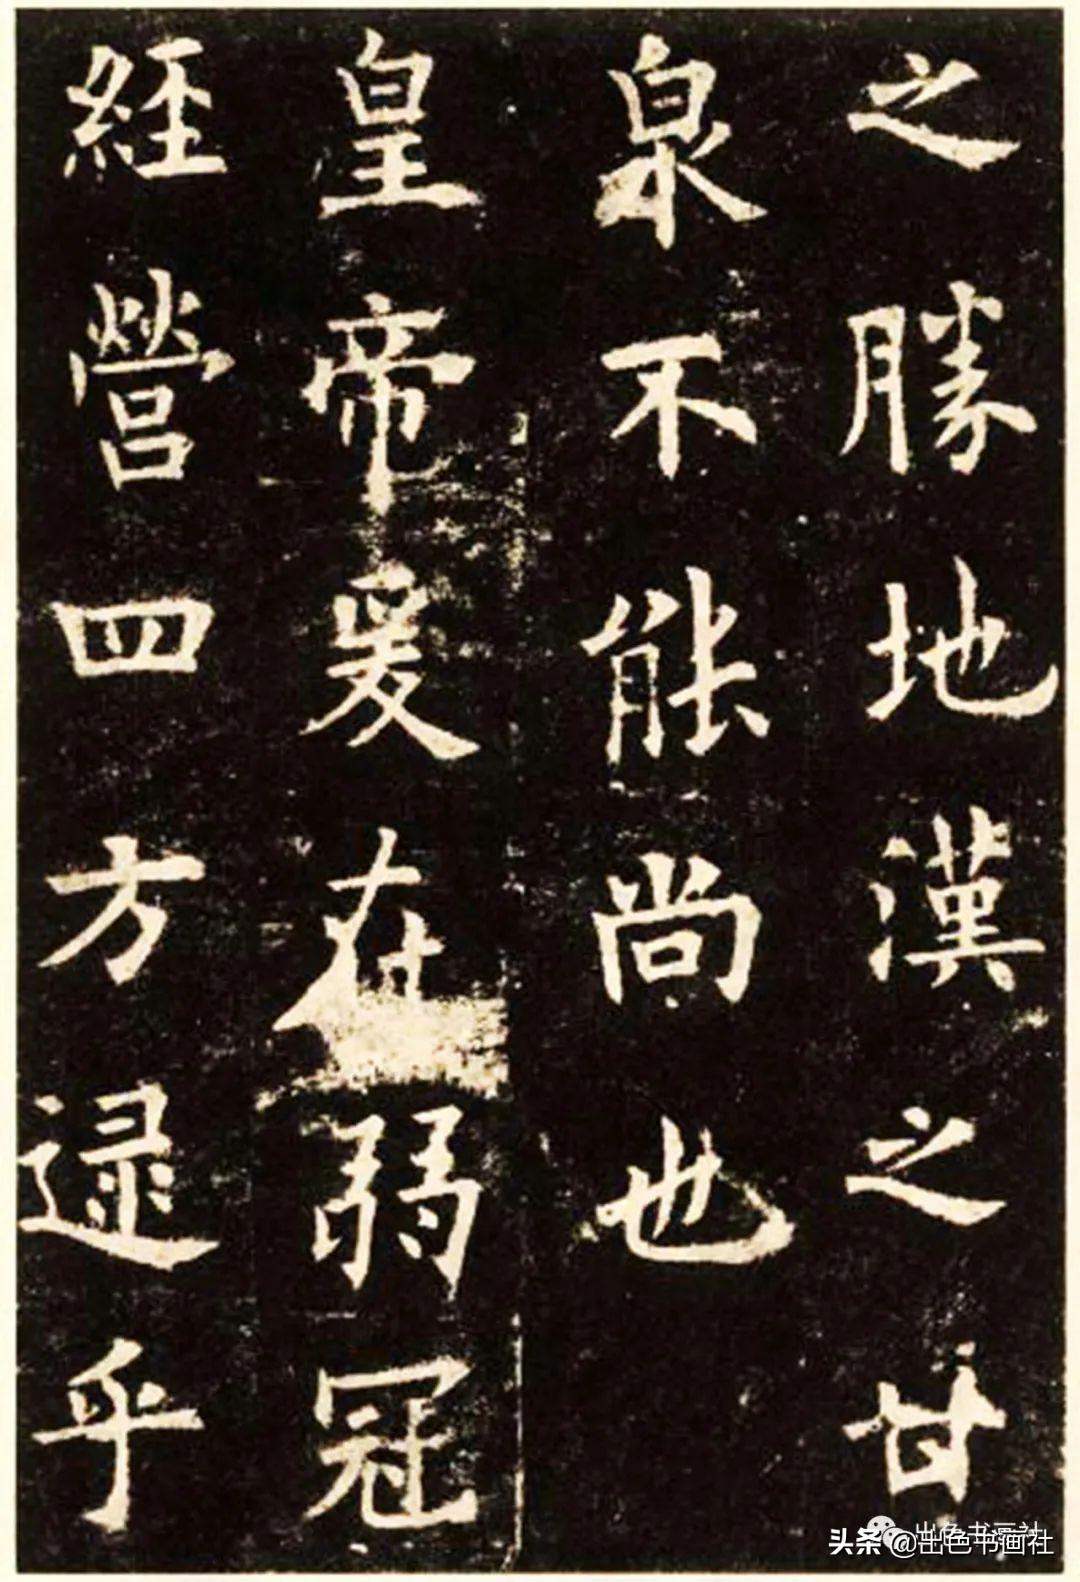 之勝地漢之甘
泉不能尚也
皇帝爰在弱冠
經營四方逯乎
出色书画社
头条@出色书画社